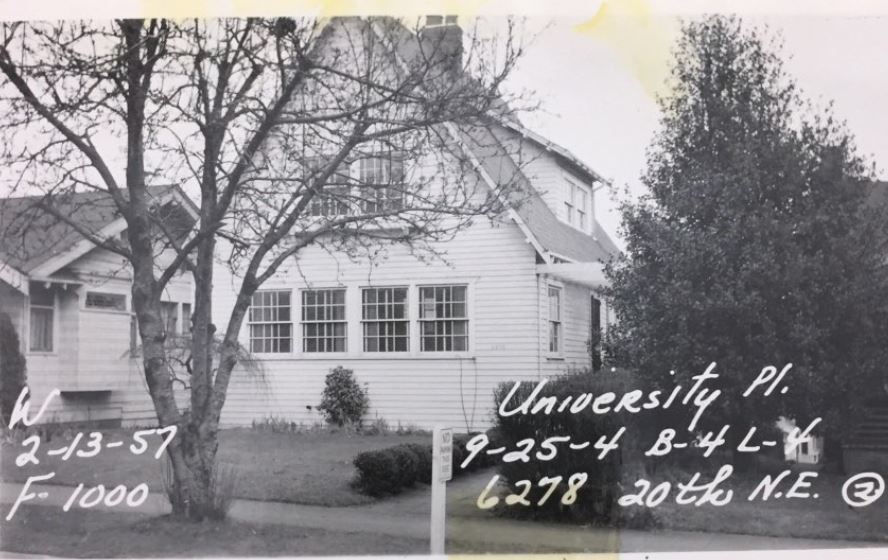 W
2-13-57
F-1000
University Pl.
9-25-4 B-4 L-4
6278 20th N.E. 2
NO